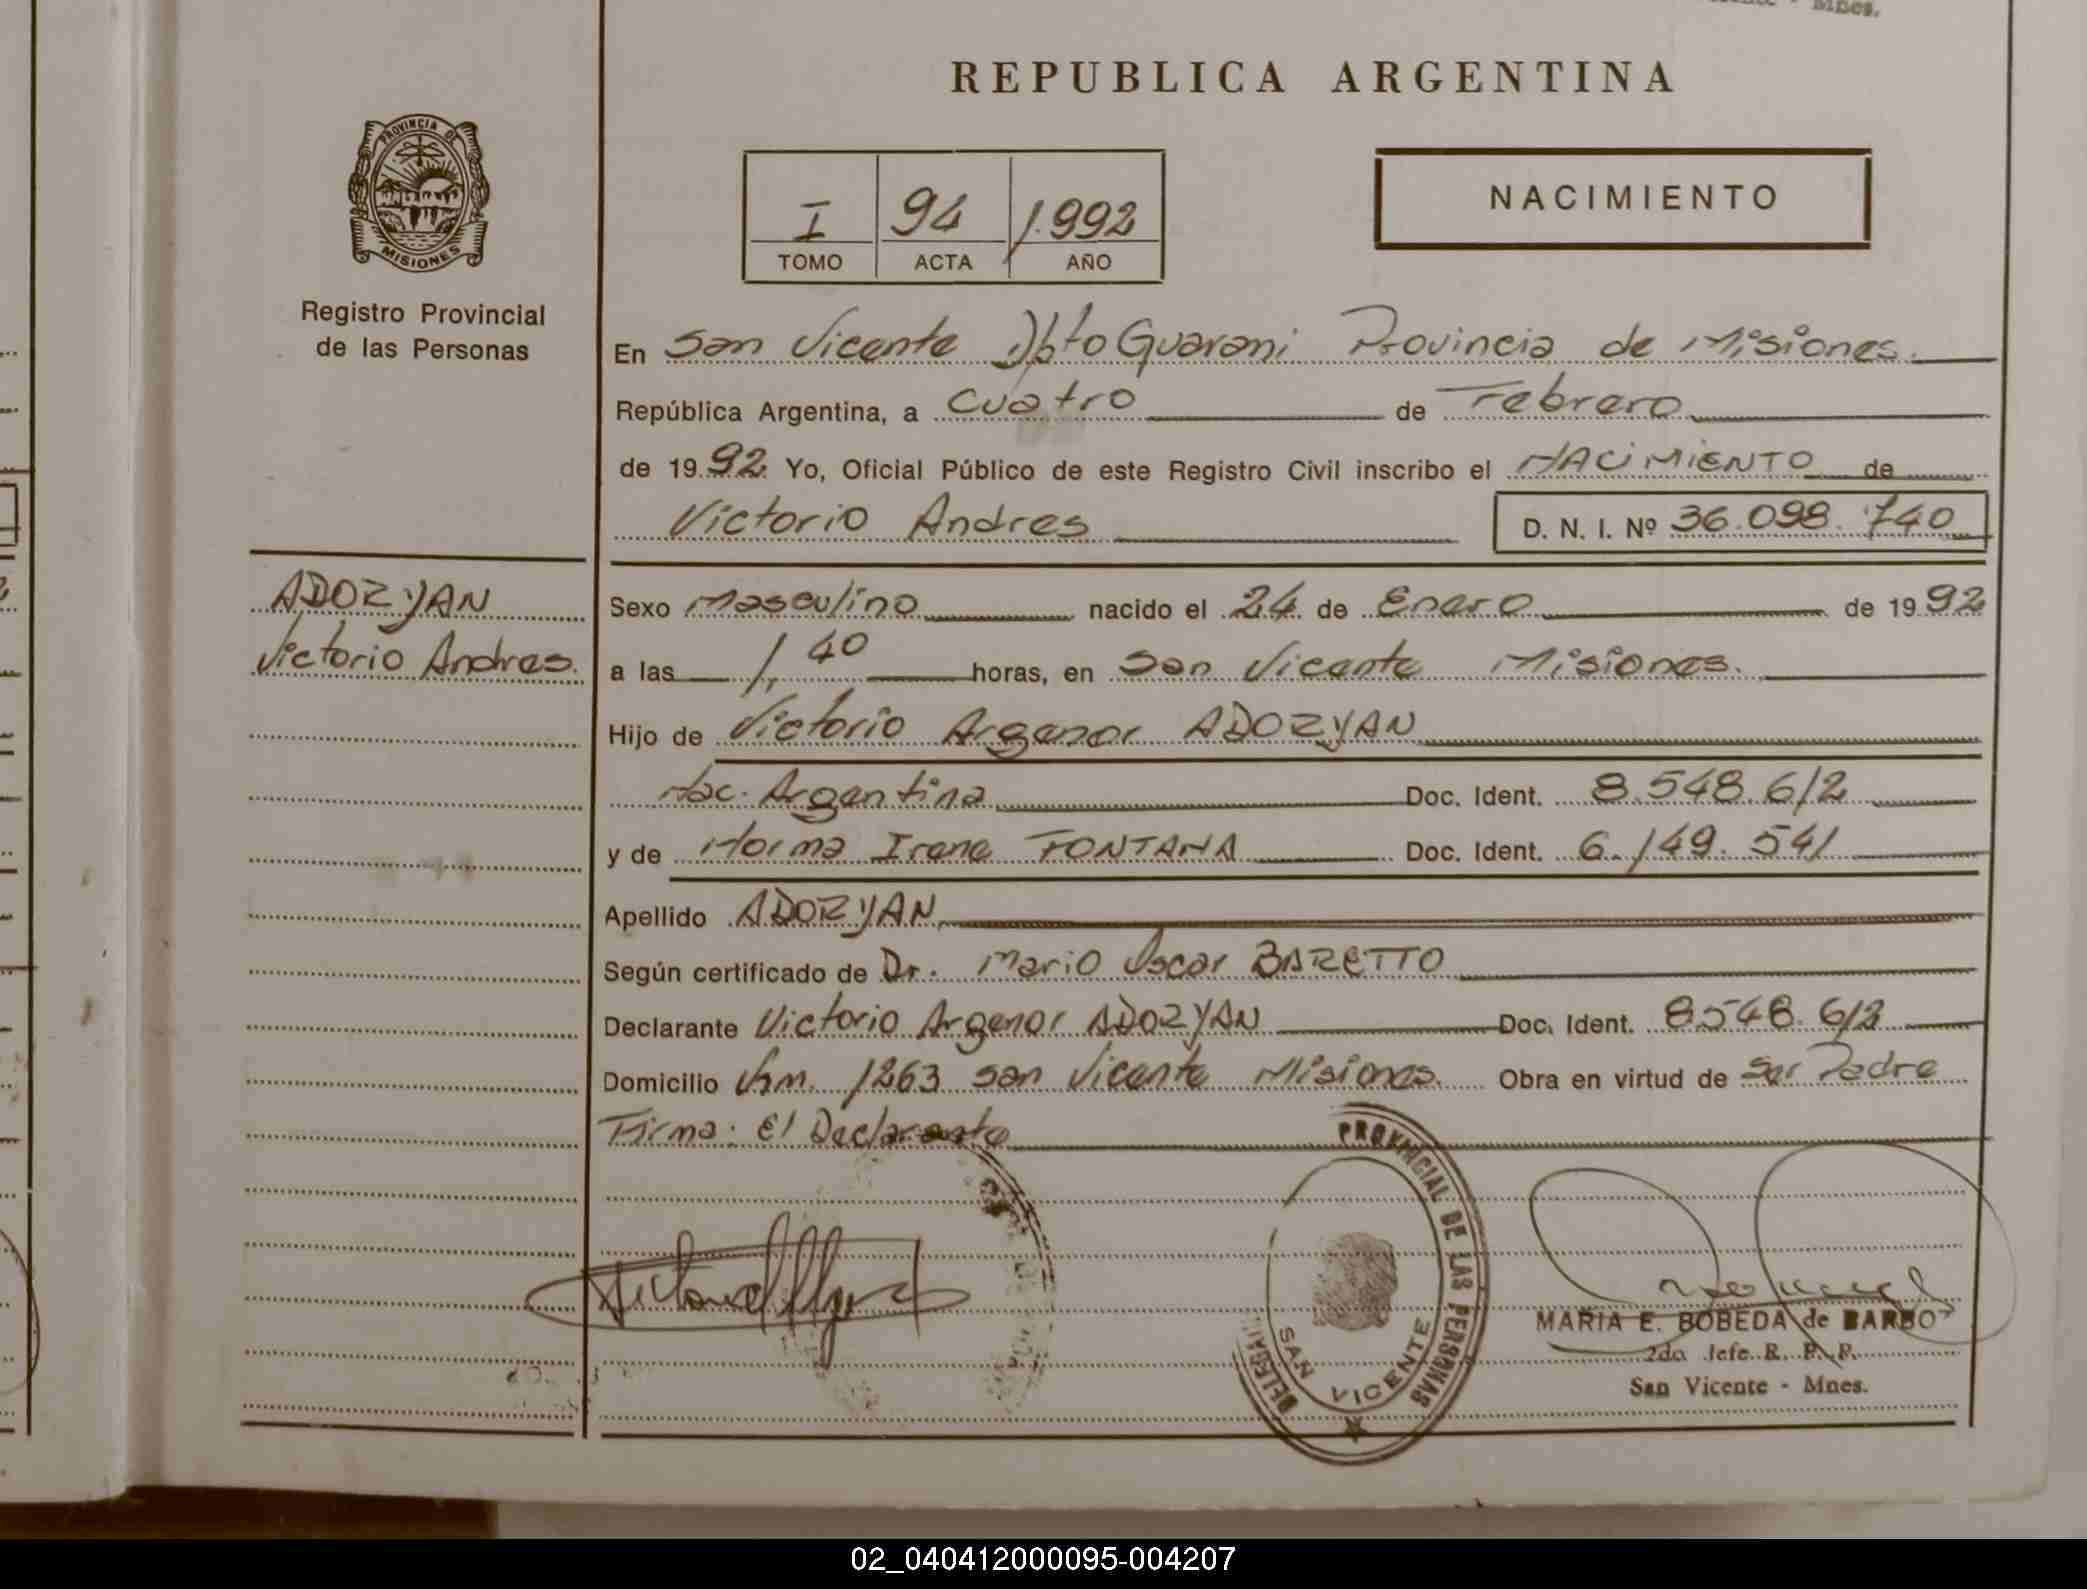 REPUBLICA ARGENTINA
PROVINCIA DE
MISIONES
Registro Provincial
de las Personas
I 94 1.992
TOMO ACTA AÑO
NACIMIENTO
En San Vicente Dpto Guarani Provincia de Misiones.
República Argentina, a Cuatro de Febrero
de 1992 Yo, Oficial Público de este Registro Civil inscribo el NACIMIENTO de
Victorio Andres D. N. I. Nº 36.098.740
ADORYAN
Victorio Andres.
Sexo Masculino nacido el 24 de Enero de 1992
a las 1,40 horas, en San Vicente Misiones.
Hijo de Victorio Argenor ADORYAN
Nac. Argentina Doc. Ident. 8.548.612
y de Norma Irene FONTANA Doc. Ident. 6.149.541
Apellido ADORYAN
Según certificado de Dr. Mario Oscar BARETTO
Declarante Victorio Argenor ADORYAN Doc. Ident. 8.548.612
Domicilio Km. 1263 San Vicente Misiones. Obra en virtud de Ser Padre
Firma: El Declarante
PROVINCIAL DE LAS PERSONAS
SAN VICENTE
MARIA E. BOBEDA de BARBO
2do Jefe R. P. P.
San Vicente - Mnes.
02_040412000095-004207